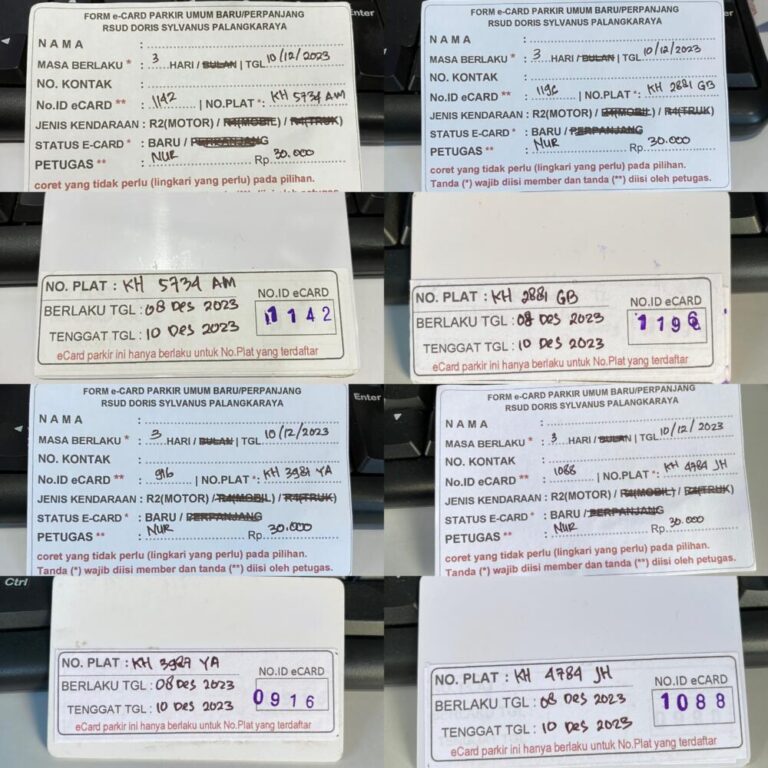 FORM e-CARD PARKIR UMUM BARU/PERPANJANG
RSUD DORIS SYLVANUS PALANGKARAYA
NAMA :
MASA BERLAKU * : 3 HARI / BULAN | TGL 10/12/2023
NO. KONTAK :
No.ID eCARD ** : 1142 | NO.PLAT *: KH 5734 AM
JENIS KENDARAAN : R2(MOTOR) / R4(MOBIL) / R4(TRUK)
STATUS E-CARD * : BARU / PERPANJANG
PETUGAS ** : NUR Rp. 30.000
coret yang tidak perlu (lingkari yang perlu) pada pilihan.
Tanda (*) wajib diisi member dan tanda (**) diisi oleh petugas.
Enter
FORM e-CARD PARKIR UMUM BARU/PERPANJANG
RSUD DORIS SYLVANUS PALANGKARAYA
NAMA :
MASA BERLAKU * : 3 HARI / BULAN | TGL 10/12/2023
NO. KONTAK :
No.ID eCARD ** : 1196 | NO.PLAT *: KH 2881 GB
JENIS KENDARAAN : R2(MOTOR) / R4(MOBIL) / R4(TRUK)
STATUS E-CARD * : BARU / PERPANJANG
PETUGAS ** : NUR Rp. 30.000
coret yang tidak perlu (lingkari yang perlu) pada pilihan.
Tanda (*) wajib diisi member dan tanda (**) diisi oleh petugas.
NO. PLAT : KH 5734 AM
BERLAKU TGL : 08 Des 2023
TENGGAT TGL : 10 Des 2023
NO.ID eCARD
1142
eCard parkir ini hanya berlaku untuk No.Plat yang terdaftar
NO. PLAT : KH 2881 GB
BERLAKU TGL : 08 Des 2023
TENGGAT TGL : 10 Des 2023
NO.ID eCARD
1196
eCard parkir ini hanya berlaku untuk No.Plat yang terdaftar
FORM e-CARD PARKIR UMUM BARU/PERPANJANG
RSUD DORIS SYLVANUS PALANGKARAYA
NAMA :
MASA BERLAKU * : 3 HARI / BULAN | TGL 10/12/2023
NO. KONTAK :
No.ID eCARD ** : 916 | NO.PLAT *: KH 3987 YA
JENIS KENDARAAN : R2(MOTOR) / R4(MOBIL) / R4(TRUK)
STATUS E-CARD * : BARU / PERPANJANG
PETUGAS ** : NUR Rp. 30.000
coret yang tidak perlu (lingkari yang perlu) pada pilihan.
Tanda (*) wajib diisi member dan tanda (**) diisi oleh petugas.
Enter
FORM e-CARD PARKIR UMUM BARU/PERPANJANG
RSUD DORIS SYLVANUS PALANGKARAYA
NAMA :
MASA BERLAKU * : 3 HARI / BULAN | TGL 10/12/2023
NO. KONTAK :
No.ID eCARD ** : 1088 | NO.PLAT *: KH 4784 JH
JENIS KENDARAAN : R2(MOTOR) / R4(MOBIL) / R4(TRUK)
STATUS E-CARD * : BARU / PERPANJANG
PETUGAS ** : NUR Rp. 30.000
coret yang tidak perlu (lingkari yang perlu) pada pilihan.
Tanda (*) wajib diisi member dan tanda (**) diisi oleh petugas.
Ctrl
NO. PLAT : KH 3987 YA
BERLAKU TGL : 08 Des 2023
TENGGAT TGL : 10 Des 2023
NO.ID eCARD
0916
eCard parkir ini hanya berlaku untuk No.Plat yang terdaftar
NO. PLAT : KH 4784 JH
BERLAKU TGL : 08 Des 2023
TENGGAT TGL : 10 Des 2023
NO.ID eCARD
1088
eCard parkir ini hanya berlaku untuk No.Plat yang terdaftar